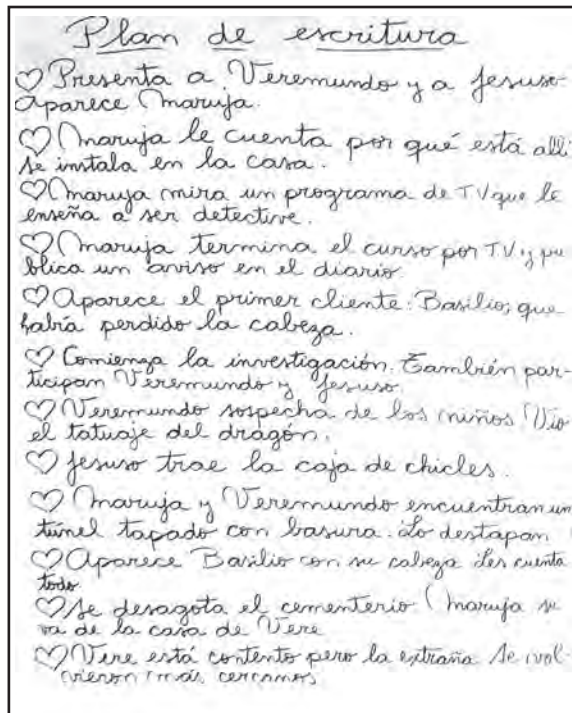 Plan de escritura
♡ Presenta a Veremundo y a Jesuso
Aparece Maruja.
♡ Maruja le cuenta por qué está allí
se instala en la casa.
♡ Maruja mira un programa de TV que le
enseña a ser detective.
♡ Maruja termina el curso por TV. y pu
blica un aviso en el diario
♡ Aparece el primer cliente: Basilio; que
había perdido la cabeza.
♡ Comienza la investigación. También par-
ticipan Veremundo y Jesuso.
♡ Veremundo sospecha de los niños. Vio
el tatuaje del dragón.
♡ Jesuso trae la caja de chicles.
♡ Maruja y Veremundo encuentran un
túnel tapado con basura. Lo destapan
♡ Aparece Basilio con su cabeza Les cuenta
todo.
♡ Se desagota el cementerio Maruja se
va de la casa de Vere
♡ Vere está contento pero la extraña Se vol-
vieron más cercanos